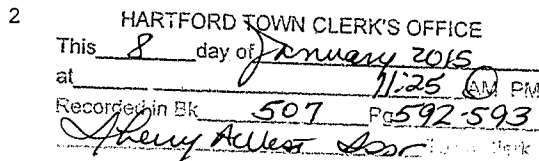 2
HARTFORD TOWN CLERK'S OFFICE
This 8 day of January 2015
at 11:25 AM PM
Recorded in Bk 507 Pg 592-593
Sherry West Clerk